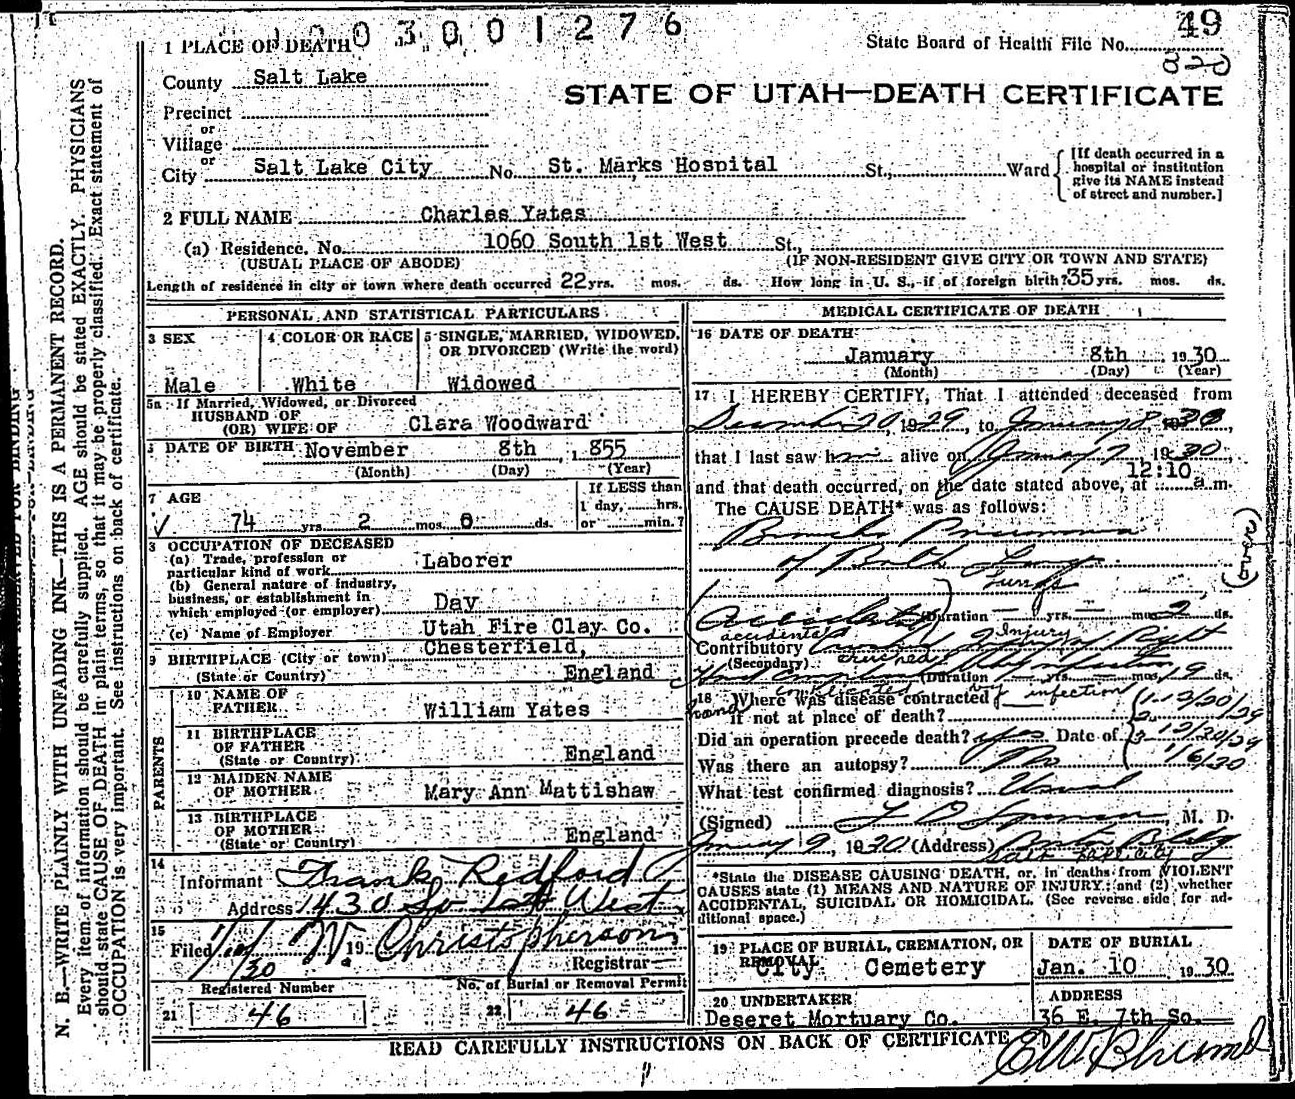 1003001276
49
1 PLACE OF DEATH
State Board of Health File No.
County Salt Lake
STATE OF UTAH—DEATH CERTIFICATE
Precinct
or
Village
or
City Salt Lake City No. St. Marks Hospital St., Ward
[If death occurred in a hospital or institution give its NAME instead of street and number.]
2 FULL NAME Charles Yates
(a) Residence. No. 1060 South 1st West St.,
(USUAL PLACE OF ABODE) (IF NON-RESIDENT GIVE CITY OR TOWN AND STATE)
Length of residence in city or town where death occurred 22 yrs. mos. ds. How long in U. S., if of foreign birth? 35 yrs. mos. ds.
N. B.—WRITE PLAINLY WITH UNFADING INK—THIS IS A PERMANENT RECORD.
Every item of information should be carefully supplied. AGE should be stated EXACTLY. PHYSICIANS
should state CAUSE OF DEATH in plain terms, so that it may be properly classified. Exact statement of
OCCUPATION is very important. See instructions on back of certificate.
PERSONAL AND STATISTICAL PARTICULARS
3 SEX
Male
4 COLOR OR RACE
White
5 SINGLE, MARRIED, WIDOWED,
OR DIVORCED (Write the word)
Widowed
5a If Married, Widowed, or Divorced
HUSBAND OF
(OR) WIFE OF Clara Woodward
DATE OF BIRTH November 8th, 1855
(Month) (Day) (Year)
7 AGE
74 yrs. 2 mos. 0 ds.
If LESS than
1 day, hrs.
or min.?
OCCUPATION OF DECEASED
(a) Trade, profession or
particular kind of work Laborer
(b) General nature of industry,
business, or establishment in
which employed (or employer) Day
(c) Name of Employer Utah Fire Clay Co.
9 BIRTHPLACE (City or town) Chesterfield,
(State or Country) England
PARENTS
10 NAME OF
FATHER William Yates
11 BIRTHPLACE
OF FATHER
(State or Country) England
12 MAIDEN NAME
OF MOTHER Mary Ann Mattishaw
13 BIRTHPLACE
OF MOTHER
(State or Country) England
14
Informant Frank Redford
Address 1430 So 1st West
15
Filed 1/10/30 19 Christopherson
Registrar
Registered Number
21 46
No. of Burial or Removal Permit
22 46
MEDICAL CERTIFICATE OF DEATH
16 DATE OF DEATH
January 8th 1930
(Month) (Day) (Year)
17 I HEREBY CERTIFY, That I attended deceased from
December 20, 1929, to January 8, 1930,
that I last saw him alive on January 7, 1930
and that death occurred, on the date stated above, at 12:10 a.m.
The CAUSE DEATH* was as follows:
Broncho Pneumonia
of Both Lungs
Lungs
(over)
(Accidental) Duration — yrs. — mos. 2 ds.
accidental Injury
Contributory Crushed Injury Right
(Secondary) crushed
Hand complicated (Duration — yrs. — mos. 19 ds.
complicated by infection
18 Where was disease contracted
hand
if not at place of death?
1-12/20/29
Did an operation precede death? yes Date of 12/30/29
1/6/30
Was there an autopsy? No
What test confirmed diagnosis? Usual
(Signed) M. D.
January 9, 1930 (Address) Bldg
Salt Lake City
*State the DISEASE CAUSING DEATH, or, in deaths from VIOLENT
CAUSES state (1) MEANS AND NATURE OF INJURY; and (2) whether
ACCIDENTAL, SUICIDAL OR HOMICIDAL. (See reverse side for ad-
ditional space.)
19 PLACE OF BURIAL, CREMATION, OR
REMOVAL
City Cemetery
DATE OF BURIAL
Jan. 10 1930
20 UNDERTAKER
Deseret Mortuary Co.
ADDRESS
36 E. 7th So.
READ CAREFULLY INSTRUCTIONS ON BACK OF CERTIFICATE